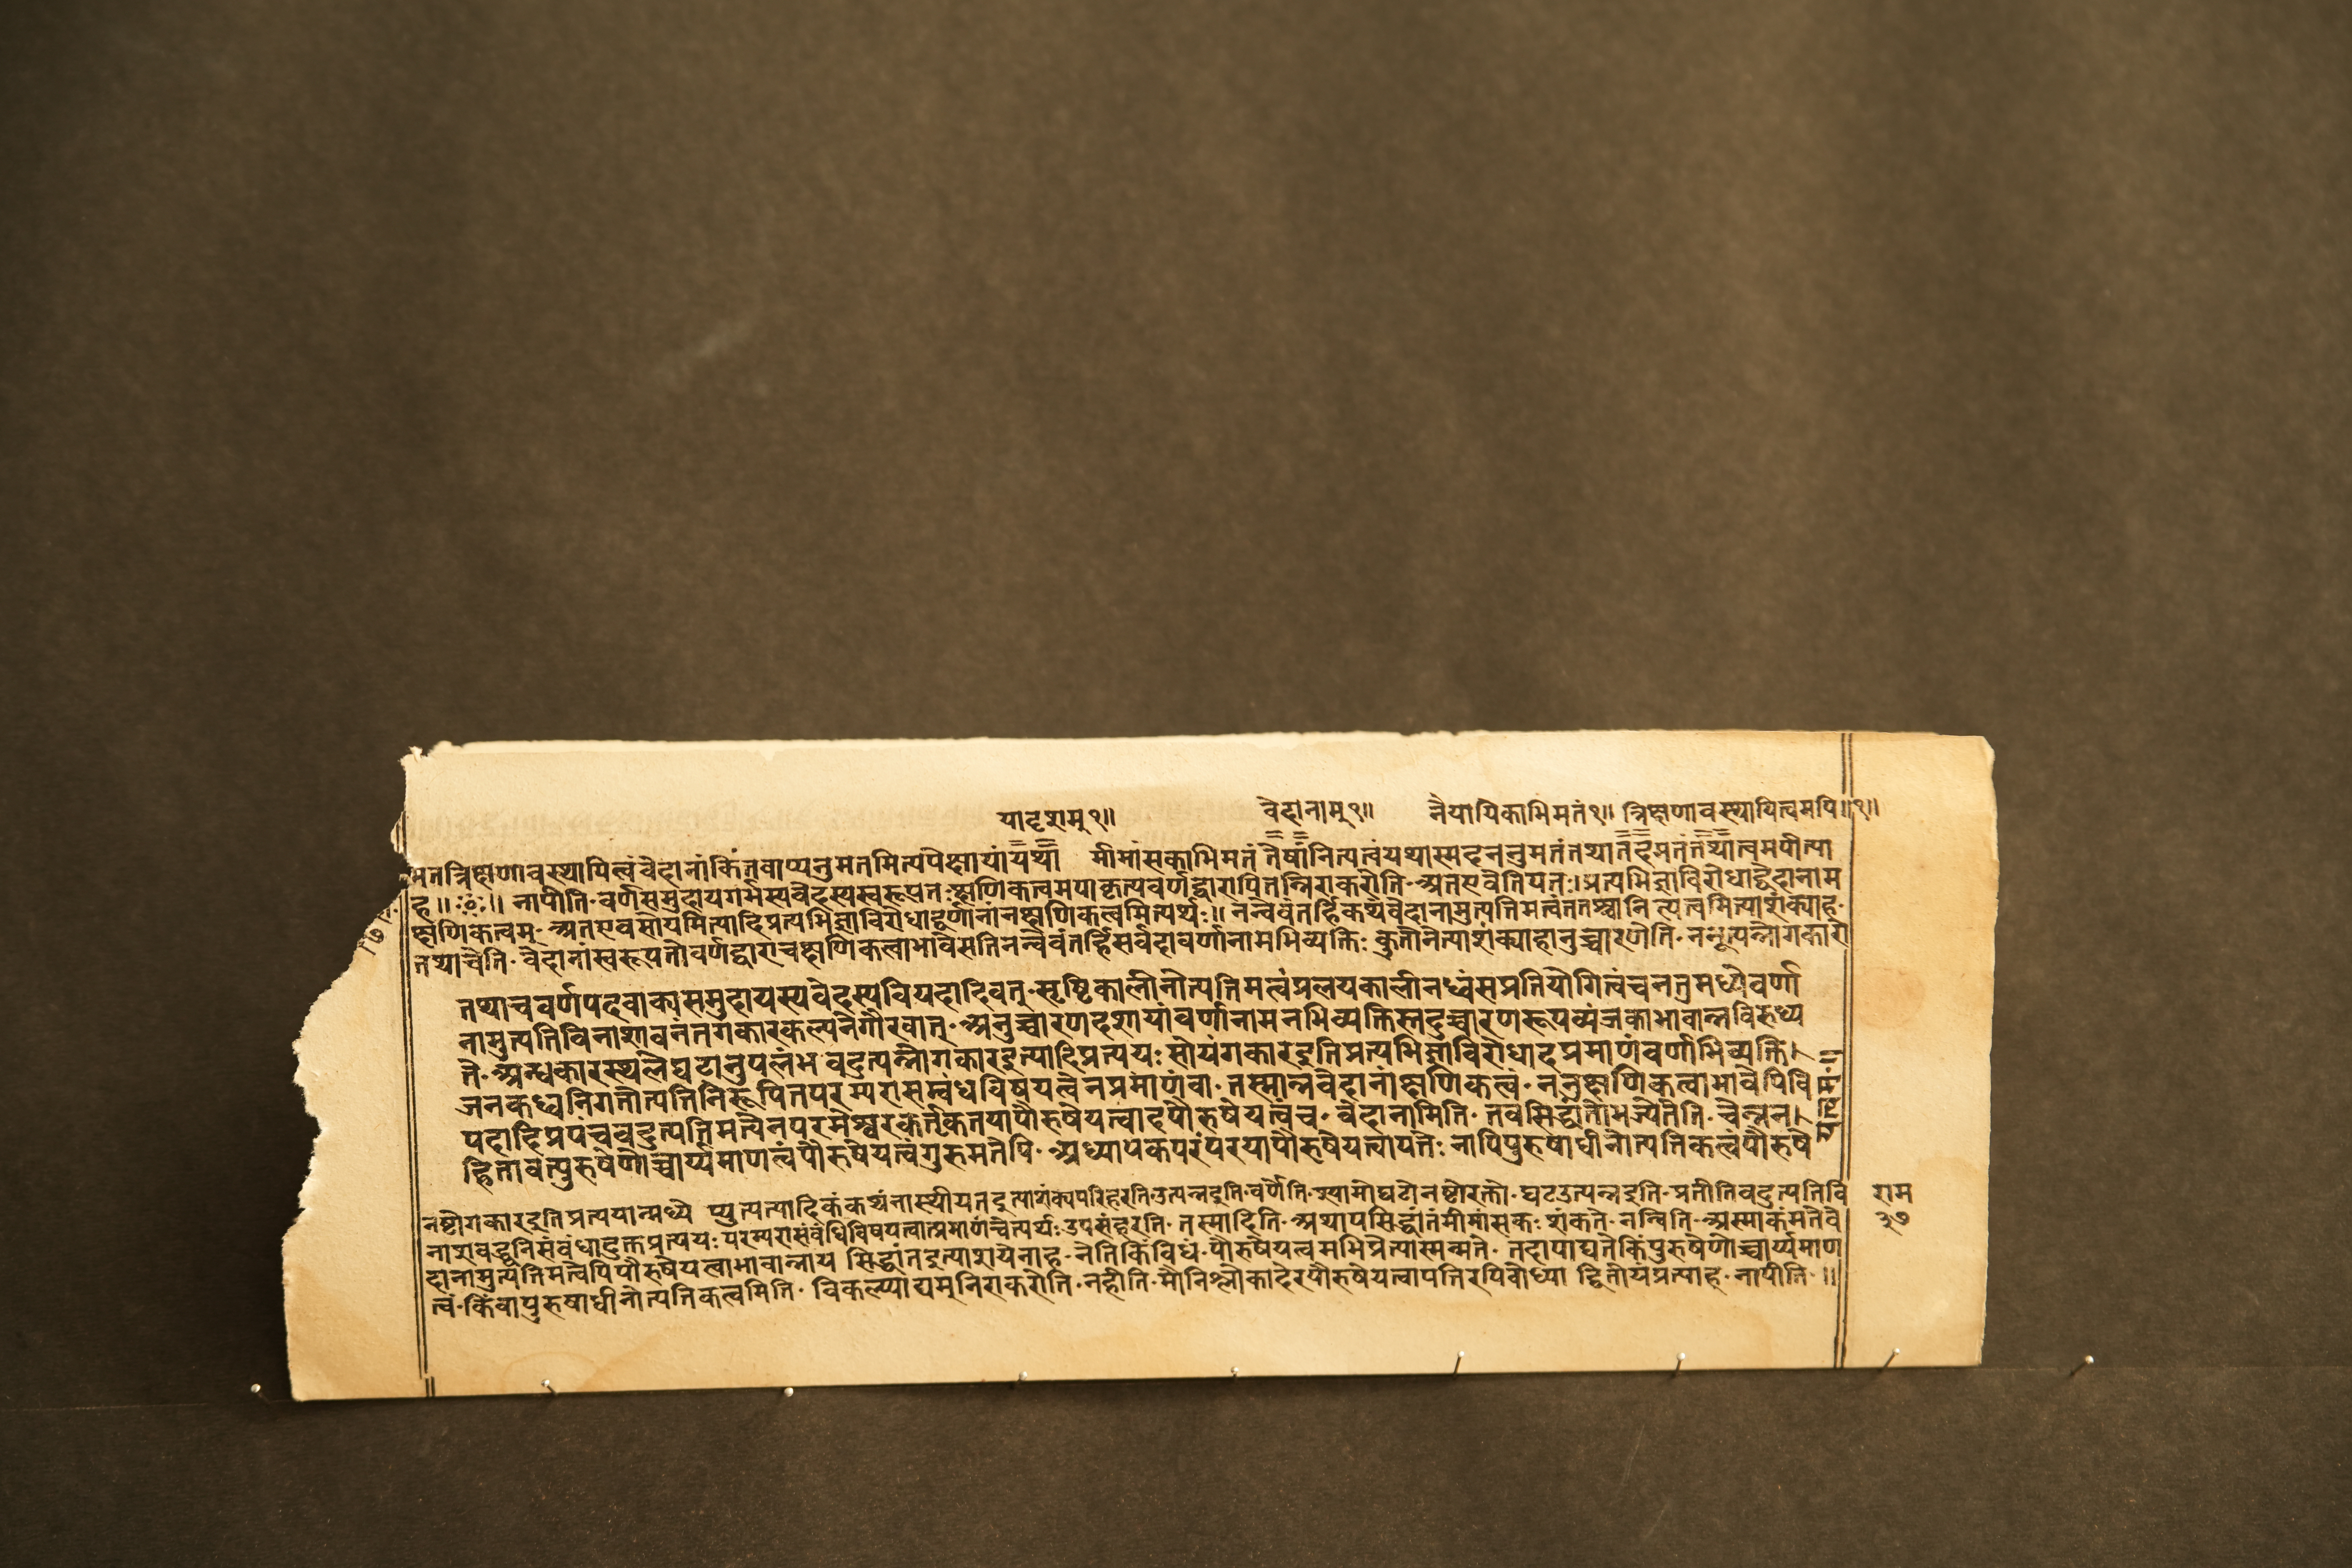 यादृशम् १॥ वेदानाम् १॥ नैयायिकाभिमतं १॥ त्रिक्षणावस्थायित्वमपि ॥१॥
मतत्रिक्षणावस्थायित्वं वेदानां किं तवाप्यनुमतमित्यपेक्षायां यथा मीमांसकाभिमतं तेषां नित्यत्वं यथास्मदननुमतं तथा तदमतं तथात्वमपीत्या
ह ॥ ॰ ॥ नापीति॰ वर्णसमुदायगर्भस्य वेदस्य स्वरूपतः क्षणिकत्वमपाकृत्य वर्णद्वारापि तन्निराकरोति॰ अत एवेति यतः। प्रत्यभिज्ञाविरोधाद्वेदानाम
क्षणिकत्वम्॰ अत एव सोयमित्यादिप्रत्यभिज्ञाविरोधाद्वर्णानां न क्षणिकत्वमित्यर्थः॥ नन्वेवं तर्हि कथं वेदानामुत्पत्तिमत्वं ततश्चानित्यत्वमित्याशंक्याह॰
तथाचेति॰ वेदानां स्वरूपतो वर्णद्वारा च क्षणिकत्वाभावे सति नन्वेवं तर्हि सर्वदा वर्णानामभिव्यक्तिः कुतो नेत्याशंक्याहानुच्चारणेति॰ ननूत्पन्नो गकारो
तथाच वर्णपदवाक्यसमुदायस्य वेदस्य वियदादिवत्॰ सृष्टिकालीनोत्पत्तिमत्वं प्रलयकालीनध्वंसप्रतियोगित्वं च नतु मध्ये वर्णा
नामुत्पत्तिविनाशावनंतगकारकल्पने गौरवात्॰ अनुच्चारणदशायां वर्णानामनभिव्यक्तिस्तदुच्चारणरूपव्यंजकाभावान्न विरुध्य
ते॰ अन्धकारस्थले घटानुपलंभवदुत्पन्नो गकार इत्यादिप्रत्ययः सोयं गकार इति प्रत्यभिज्ञाविरोधादप्रमाणं वर्णाभिव्यक्ति।
जनकध्वनिगतोत्पत्तिनिरूपितपरम्परासम्बंधविषयत्वेन प्रमाणं वा॰ तस्मान्न वेदानां क्षणिकत्वं॰ ननु क्षणिकत्वाभावेपि वि
यदादिप्रपंचवदुत्पत्तिमत्वेन परमेश्वरकर्तृकतया पौरुषेयत्वादपौरुषेयत्वं च॰ वेदानामिति॰ तव सिद्धांतो भज्येतेति॰ चेन्न न।
हि तावत्पुरुषेणोच्चार्य्यमाणत्वं पौरुषेयत्वं गुरुमतेपि॰ अध्यापकपरंपरया पौरुषेयत्वापत्तेः नापि पुरुषाधीनोत्पत्तिकत्वं पौरुषे
नष्टो गकार इति प्रत्ययान्मध्ये प्युत्पत्यादिकं कथं नास्थीयत इत्याशंक्य परिहरति॰ उत्पन्न इति॰ वर्णेति॰ श्यामो घटो नष्टो रक्तो॰ घट उत्पन्न इति॰ प्रतीतिवदुत्पत्तिवि
राम
३७
नाशवद्ध्वनिसंबंधादुक्तप्रत्ययः परम्परासंबंधविषयत्वात्प्रमाणं चेत्यर्थः उपसंहरति॰ तस्मादिति॰ अथापसिद्धांतं मीमांसकः शंकते॰ नन्विति॰ अस्माकं मते वे
दानामुत्पत्तिमत्वेपि पौरुषेयत्वाभावान्नाय सिद्धांत इत्याशयेनाह॰ नेति किंविधं॰ पौरुषेयत्वमभिप्रेत्यास्मन्मते॰ तदापाद्यते किं पुरुषेणोच्चार्य्यमाण
त्वं॰ किंवा पुरुषाधीनोत्पत्तिकत्वमिति॰ विकल्प्याद्यमुनिराकरोति॰ नहीति॰ मौनिश्लोकादेरपौरुषेयत्वापत्तिरपि बोध्या द्वितीयं प्रत्याह॰ नापीति॰॥